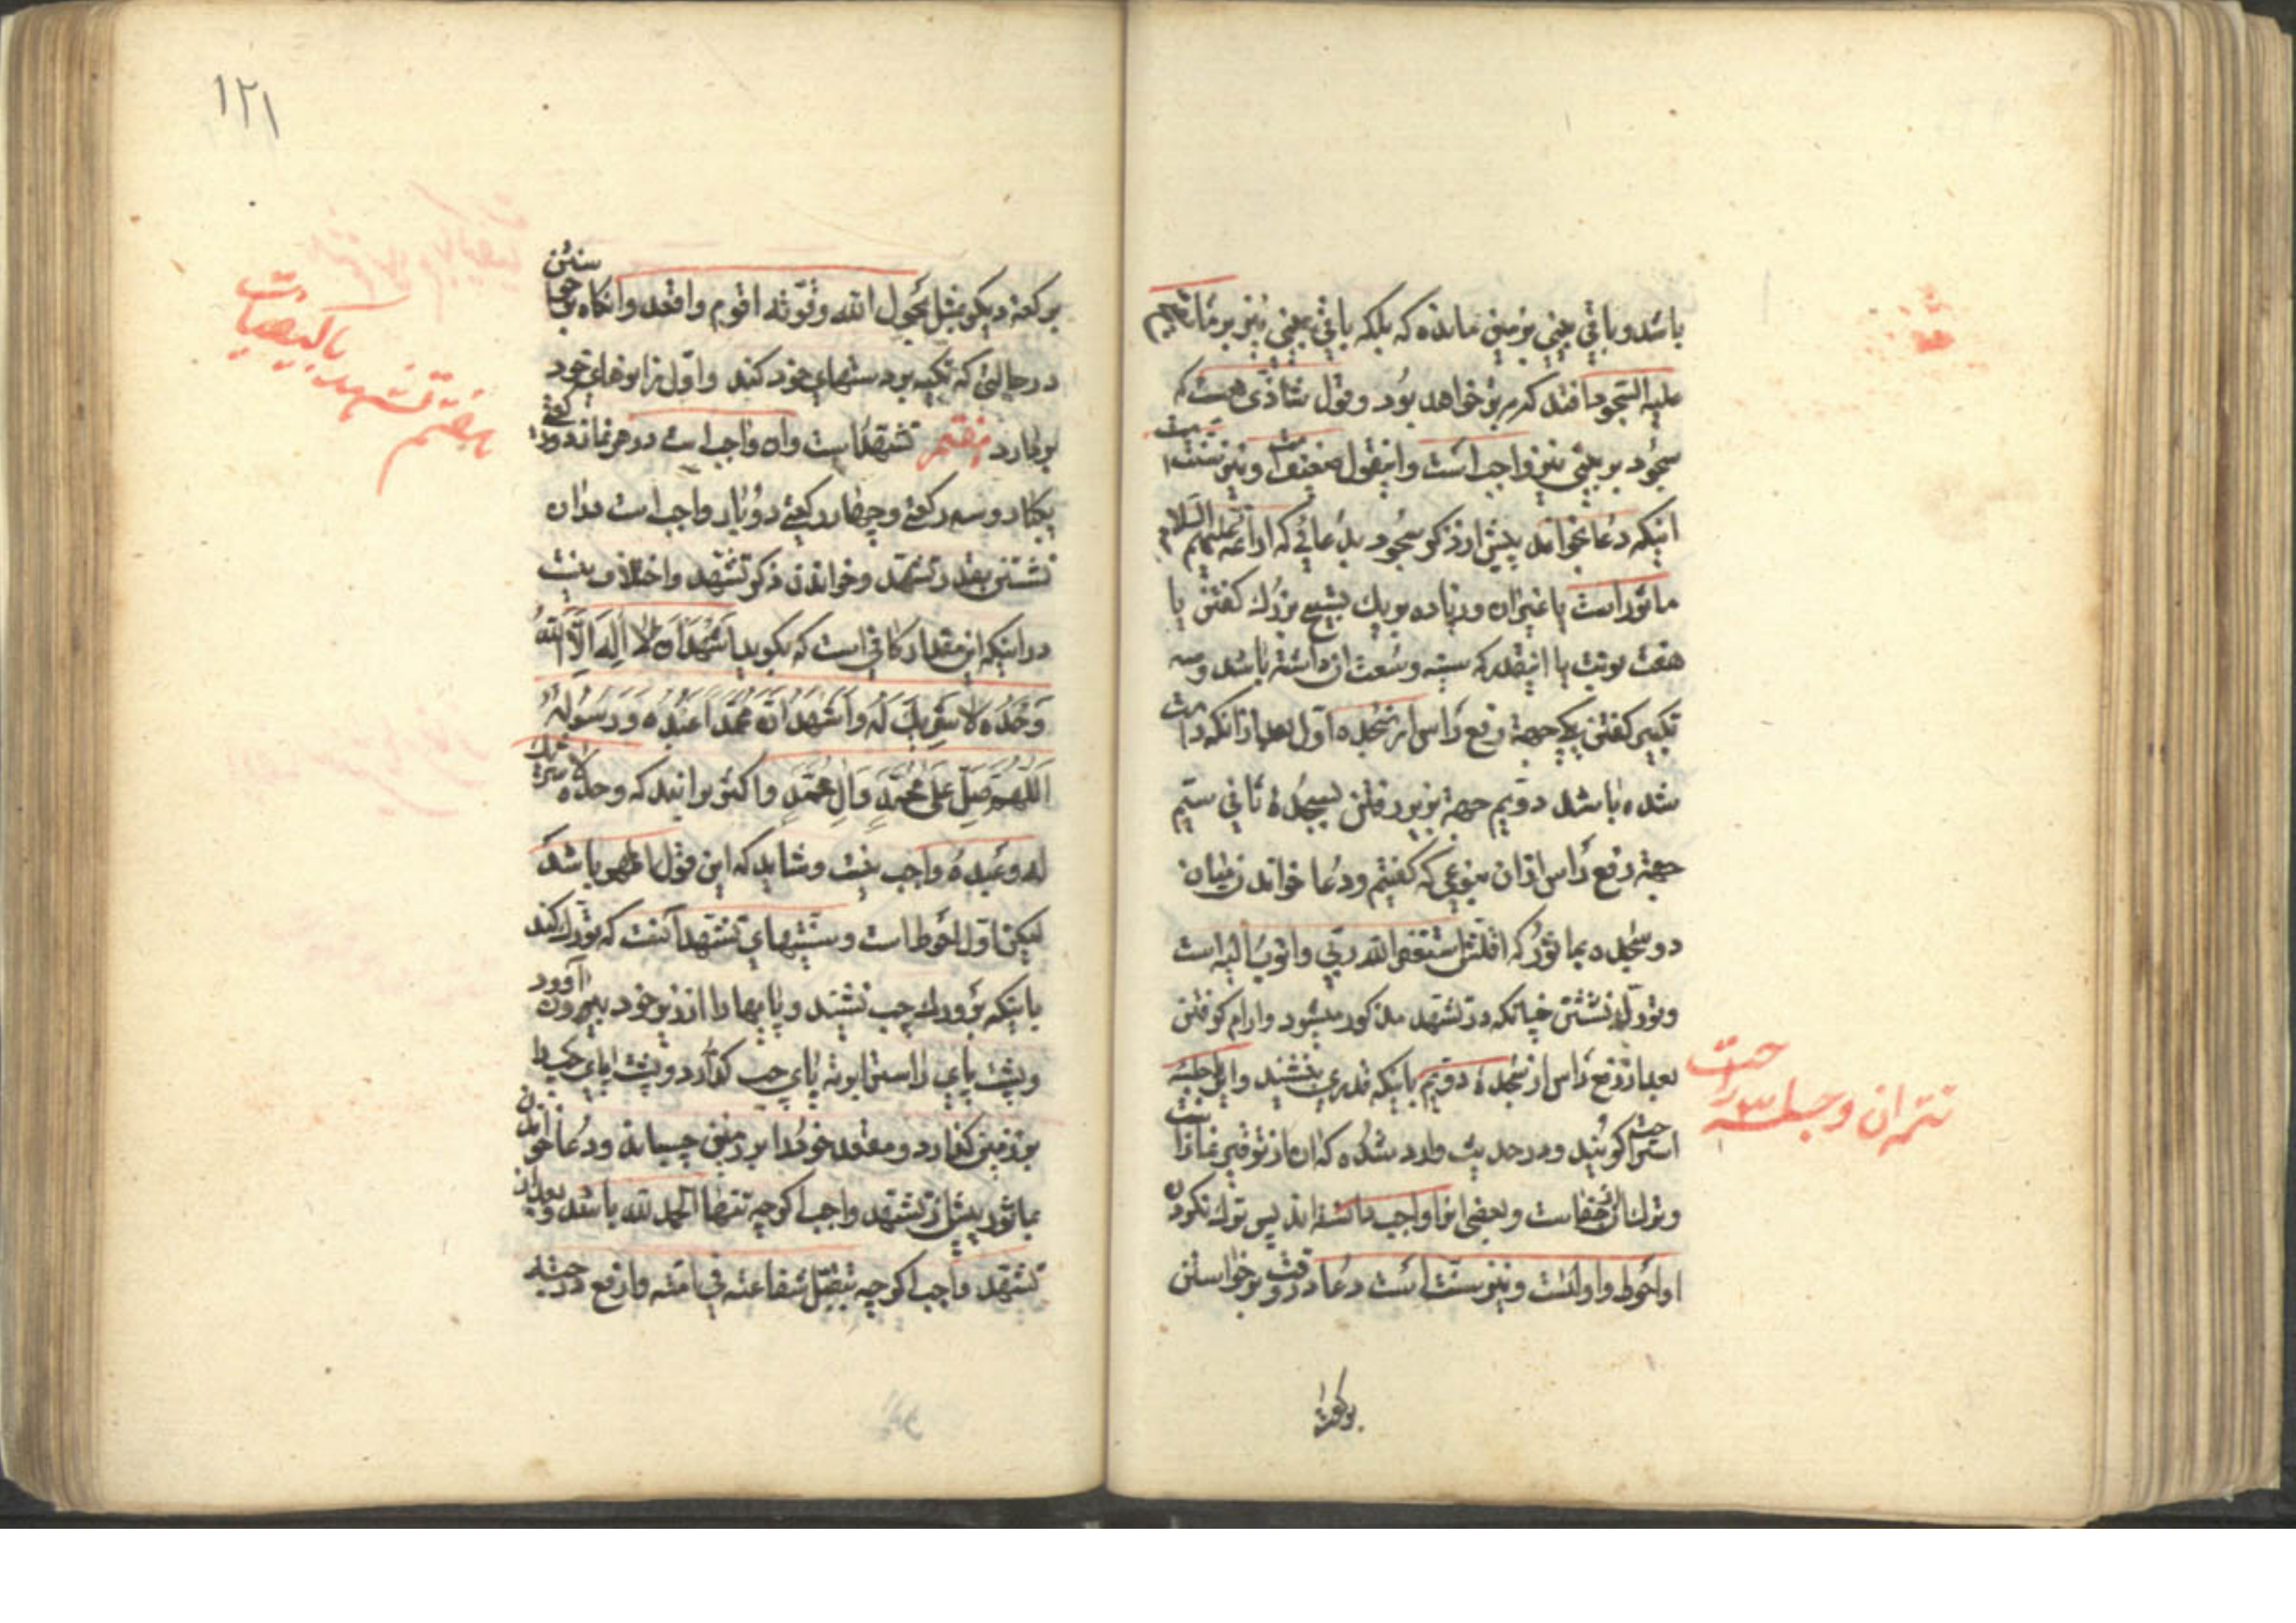 باشد و باقی بینی بزمین مانده که بلکه باقی بینی نیز بر ما یصح
علیه السجود افتد کرم بر خواهد بود و قول شاذی هست که
سجود بر بینی نیز واجب است و اینقول ضعیف است و نیز سنت است
اینکه دعا بخواند پیش از ذکر سجود بدعائی که از ائمه علیهم السلام
ماثور است یا غیر آن و زیاده بر یک تسبیح بزرگ گفتن یا
هفت نوبت یا آنقدر که سینه وسعت آن داشته باشد و سه
تکبیر گفتن یکی جهة رفع راس از سجده اول بعد از آنکه راست
شده باشد دویم جهة بزیر رفتن بسجدهٔ ثانی سیم
جهة رفع راس از آن بنوعی که گفتیم و دعا خواندن میان
دو سجده بماثور که اقلش استغفر الله ربی و اتوب الیه است
و تورک نشستن چنانکه در تشهد مذکور میشود و آرام گرفتن
بعد از رفع راس از سجدهٔ دویم باینکه قدری بنشیند و این را جلسه
استراحت گویند و در حدیث وارد شده که آن از توقیر نماز است
و ترک آن جفا است و بعضی آنرا واجب دانسته اند پس ترک نکردن
او احوط و اولیست و نیز سنت است دعا در وقت برخواستن
برکعة
تتمه ان وجلسه استراحت
١٢١
برکعة دیگر بمثل بحول الله و قوته اقوم و اقعد و آنگاه برخواستن
در حالتی که تکیه بر دستهای خود کند و اول زانوهای خود
بردارد هفتم تشهد است و آن واجب است در هر نماز دو رکعتی
یکبار و سه رکعتی و چهار رکعتی دو بار و واجب است در آن
نشستن بقدر تشهد و خواندن ذکر تشهد و اختلاف نیست
در اینکه این مقدار کافی است که بگوید اَشْهَدُ اَنْ لا اِلهَ اِلاَّ اللهُ
وَحْدَهُ لا شَرِیكَ لَهُ وَاَشْهَدُ اَنَّ مُحَمَّدًا عَبْدُهُ وَرَسُولُهُ
اَللّهُمَّ صَلِّ عَلی مُحَمَّدٍ وَآلِ مُحَمَّدٍ و اکثر برانند که وحده لا شریک
له و عبده واجب نیست و شاید که این قول اظهر باشد
لیکن اول احوط است و سنتیهای تشهد آنست که تورک کند
باینکه بر ورک چپ نشیند و پایها را از زیر خود بیرون آورد
و پشت پای راست را بر ته پای چپ گذارد و پشت پای چپ را
بر زمین گذارد و مقعد خود را بر زمین چسباند و دعا خواندن
بماثور پیش از تشهد واجب اگرچه تنها الحمد لله باشد و بعد از
تشهد واجب اگرچه تقبل شفاعته فی امته و ارفع درجته
هفتم تشهد با کیفیات